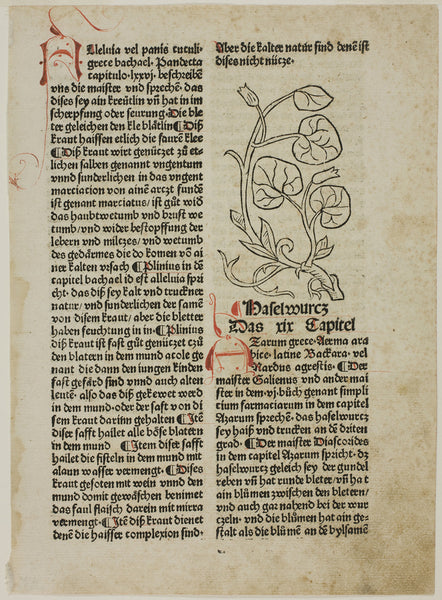 Alleluia vel panis cuculi·
grece bachael· Pandecta
capitulo·lxxvj· beschreibē
vns die maister vñ sprechē· das
dises sey ain kreütlin vñ hat in im
scherpfung oder seurung· Die ble
ter geleichen den kle blåtlin ¶ Diß
kraut haissen etlich die saurē klee
¶ Diß kraut wirt genützet zů et-
lichen salben genant vngentum
vnnd sunderlichen in das vngent
marciacion von ainē arczt fundē
ist genant marciatus/ ist gůt wid
das haubtwetumb vnd brust we
tumb/vnd wider bestopffung der
lebern vnd milczes/ vnd wetumb
des gedärmes die do komē vō ai
ner kalten vrsach ¶ Plinius in dē
capitel bachael id est alleluia spri
cht· das diß sey kalt vnd truckner
natur/ vnd sunderlichen der samē
von disem kraut/ aber die bletter
haben feuchtung in in· ¶ Plinius
diß kraut ist fast gůt genützet czů
den blatern in dem mund acole ge
nant die dann den iungen kinden
fast gefård sind vnnd auch alten
leutē· also das diß gekewet werd
in dem mund· oder der saft von di
sem kraut darinn gehalten ¶ Itē
diser safft hailet alle böse blatern
in dem mund ¶ Item diser safft
hailet die fisteln in dem mund mit
alaun wasser vermengt· ¶ Dises
kraut gesoten mit wein vnnd den
mund domit gewåschen benimet
das faul flaisch darein mit mirra
vermengt· ¶ Itē diß kraut dienet
denē die haisser complexion sind·
Aber die kalter natur sind denē ist
dises nicht nücze·
Haselwurcz
Das xix Capitel
Azarum grece· Aerma ara
bice· latine Backara· vel
Nardus agrestis· ¶ Der
maister Galienus vnd ander mai
ster in dem·vj·bůch genant simpli
cium farmaciarum in dem capitel
Azarum sprechē· das haselwurcz
sey haiß vnd trucken an dē driten
grad· ¶ Der maister Diascoides
in dem capitel Azarum spricht· dz
haselwurcz geleich sey der gundel
reben vñ hat runde bleter/vñ ha t
ain blůmen zwischen den bletern/
vnd auch gar nahend bei der wur
czeln· vnd die blůmen hat ain ge-
stalt als die blům̄ an dē bylsamē